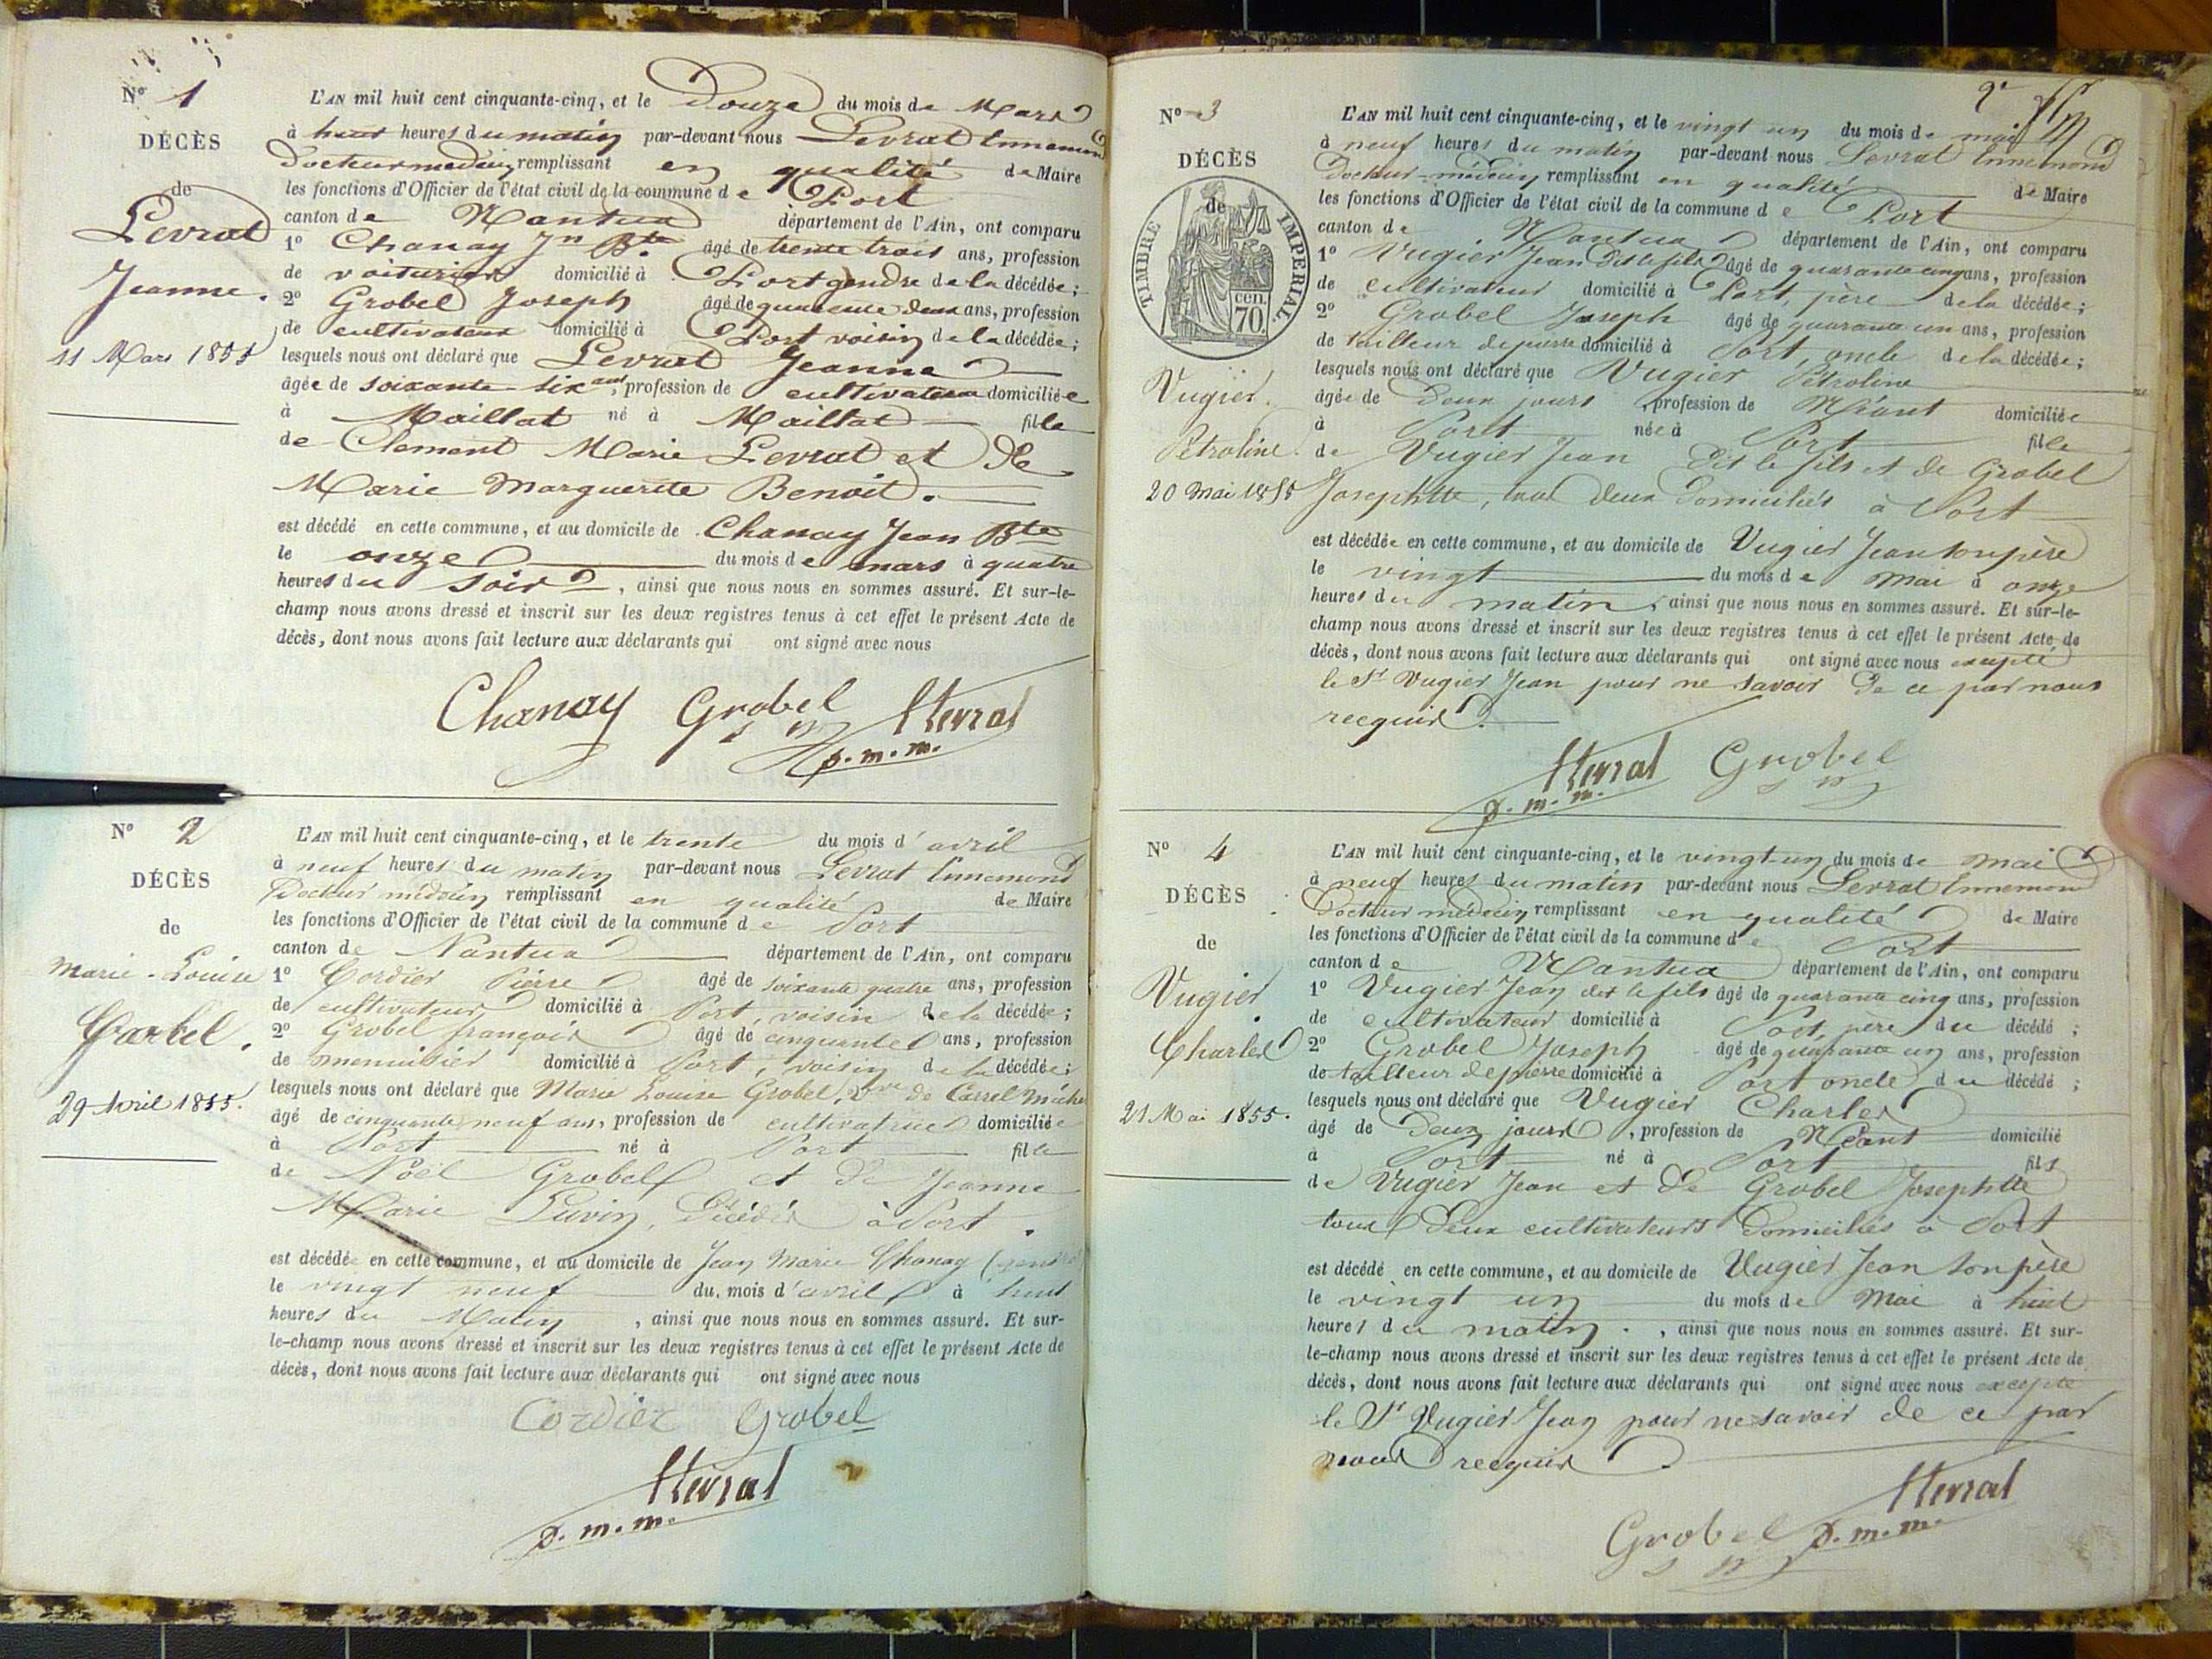 N° 1
DÉCÈS
de
Levrat
Jeanne.
11 Mars 1855
L'AN mil huit cent cinquante-cinq, et le Douze du mois de Mars
à huit heures du matin par-devant nous Levrat Ennemond
Docteur medecin remplissant en qualité de Maire
les fonctions d'Officier de l'état civil de la commune de Port
canton de Nantua département de l'Ain, ont comparu
1° Chanay Jn Bte âgé de trente trois ans, profession
de voiturier domicilié à Port gendre de la décédée ;
2° Grobel Joseph âgé de quarante deux ans, profession
de cultivateur domicilié à Port voisin de la décédée ;
lesquels nous ont déclaré que Levrat Jeanne
âgée de soixante six ans, profession de cultivateur domiciliée
à Maillat né à Maillat fille
de Clement Marie Levrat et De
Marie Marguerite Benoit.
est décédé en cette commune, et au domicile de Chanay Jean Bte
le onze du mois de mars à quatre
heures du soir, ainsi que nous nous en sommes assuré. Et sur-le-
champ nous avons dressé et inscrit sur les deux registres tenus à cet effet le présent Acte de
décès, dont nous avons fait lecture aux déclarants qui ont signé avec nous
Chanay Grobel Levrat
d. m. m.
N° 2
DÉCÈS
de
Marie-Louise
29 Avril 1855.
L'AN mil huit cent cinquante-cinq, et le trente du mois d'avril
à neuf heures du matin par-devant nous Levrat Ennemond
Docteur médecin remplissant en qualité de Maire
les fonctions d'Officier de l'état civil de la commune de Port
canton de Nantua département de l'Ain, ont comparu
1° Cordier Pierre âgé de soixante quatre ans, profession
de cultivateur domicilié à Port, voisin de la décédée ;
2° Grobel françois âgé de cinquante ans, profession
de menuisier domicilié à Port, voisin de la décédée ;
lesquels nous ont déclaré que Marie Louise Grobel, Vve de Carrel
âgé de cinquante neuf ans, profession de cultivatrice domiciliée
à Port né à Port fille
de Noël Grobel et de Jeanne
Marie Luvin, Décédés à Port.
est décédée en cette commune, et au domicile de Jean Marie Chanay
le vingt neuf du mois d'avril à huit
heures du Matin, ainsi que nous nous en sommes assuré. Et sur-
le-champ nous avons dressé et inscrit sur les deux registres tenus à cet effet le présent Acte de
décès, dont nous avons fait lecture aux déclarants qui ont signé avec nous
Cordier Grobel
Levrat
d. m. m.
N° 3
DÉCÈS
de
TIMBRE IMPERIAL
cen.
70.
Vugier.
Pétroline.
20 Mai 1855
L'AN mil huit cent cinquante-cinq, et le vingt un du mois de mai
à neuf heures du matin par-devant nous Levrat Ennemond
Docteur-médecin remplissant en qualité de Maire
les fonctions d'Officier de l'état civil de la commune de Port
canton de Nantua département de l'Ain, ont comparu
1° Vugier Jean dit le fils âgé de quarante cinq ans, profession
de cultivateur domicilié à Port, père de la décédée ;
2° Grobel Joseph âgé de quarante un ans, profession
de tailleur de pierre domicilié à Port, oncle de la décédée ;
lesquels nous ont déclaré que Vugier Pétroline
âgée de Deux jours, profession de Néant domiciliée
à Port née à Port fille
de Vugier Jean Dit le fils et de Grobel
Josephtte, tous Deux Domiciliés à Port
est décédée en cette commune, et au domicile de Vugier Jean son père
le vingt du mois de mai à onze
heures du matin, ainsi que nous nous en sommes assuré. Et sur-le-
champ nous avons dressé et inscrit sur les deux registres tenus à cet effet le présent Acte de
décès, dont nous avons fait lecture aux déclarants qui ont signé avec nous excepté
le Sr Vugier Jean pour ne savoir De ce par nous
recquis.
Levrat Grobel
d. m. m.
N° 4
DÉCÈS
de
Vugier
Charles
21 Mai 1855.
L'AN mil huit cent cinquante-cinq, et le vingt-un du mois de mai
à neuf heures du matin par-devant nous Levrat Ennemond
Docteur médecin remplissant en qualité de Maire
les fonctions d'Officier de l'état civil de la commune de Port
canton de Nantua département de l'Ain, ont comparu
1° Vugier Jean dit le fils âgé de quarante cinq ans, profession
de cultivateur domicilié à Port, père du décédé ;
2° Grobel Joseph âgé de quarante un ans, profession
de tailleur de pierre domicilié à Port oncle du décédé ;
lesquels nous ont déclaré que Vugier Charles
âgé de Deux jours, profession de Néant domicilié
à Port né à Port fils
de Vugier Jean et de Grobel Josephtte
tous Deux cultivateurs Domiciliés à Port
est décédé en cette commune, et au domicile de Vugier Jean son père
le vingt un du mois de Mai à huit
heures du matin., ainsi que nous nous en sommes assuré. Et sur-
le-champ nous avons dressé et inscrit sur les deux registres tenus à cet effet le présent Acte de
décès, dont nous avons fait lecture aux déclarants qui ont signé avec nous excepté
le Sr Vugier Jean pour ne savoir de ce par
nous recquis.
Levrat
Grobel d. m. m.